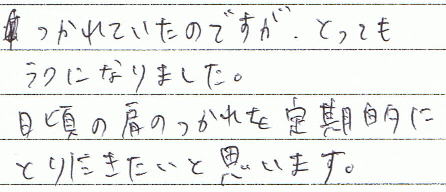 つかれていたのですが、とっても
ラクになりました。
日頃の肩のつかれを定期的に
とりにきたいと思います。